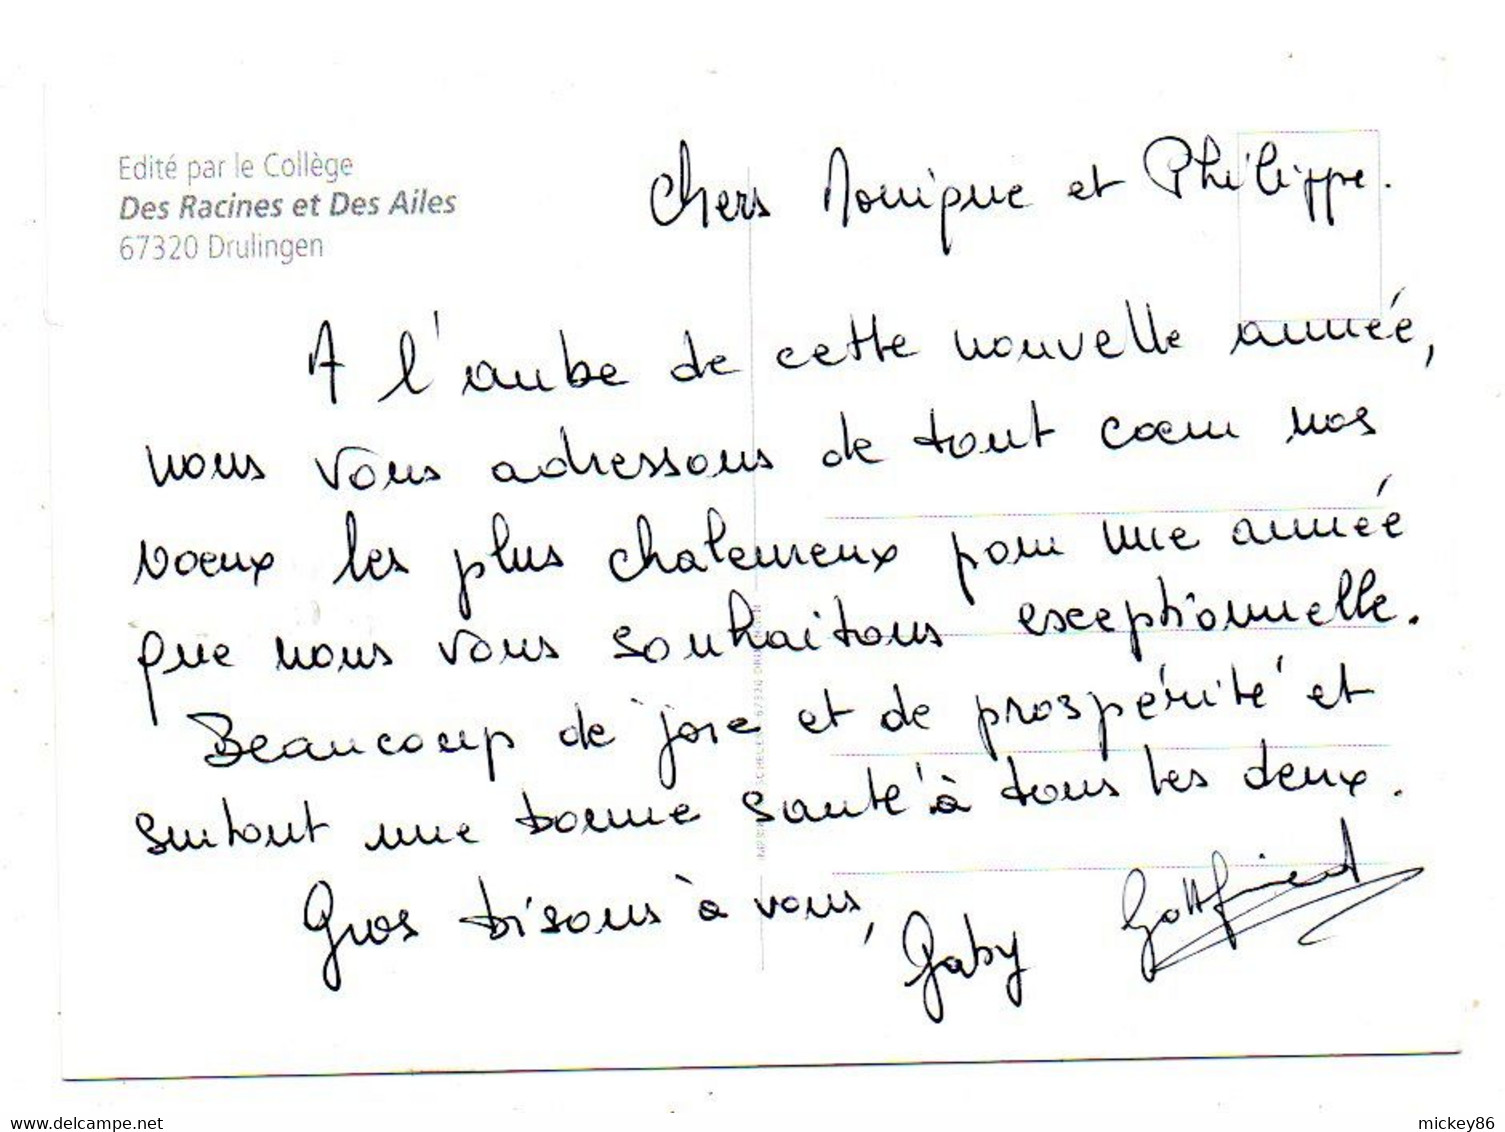 Edité par le Collège
Des Racines et Des Ailes
67320 Drulingen
Chers Monique et Philippe.
A l'aube de cette nouvelle année,
nous vous adressons de tout coeur nos
voeux les plus chaleureux pour une année
que nous vous souhaitons exceptionnelle.
Beaucoup de joie et de prospérité et
surtout une bonne santé à tous les deux.
Gros bisous à vous,
Gaby Gottfried
mickey86